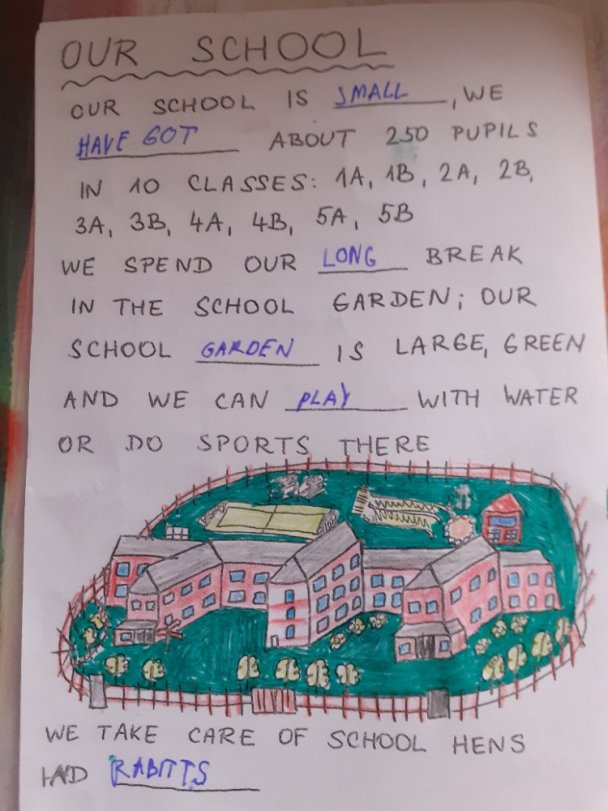 OUR SCHOOL
OUR SCHOOL IS SMALL, WE
HAVE GOT ABOUT 250 PUPILS
IN 10 CLASSES: 1A, 1B, 2A, 2B,
3A, 3B, 4A, 4B, 5A, 5B
WE SPEND OUR LONG BREAK
IN THE SCHOOL GARDEN; OUR
SCHOOL GARDEN IS LARGE, GREEN
AND WE CAN PLAY WITH WATER
OR DO SPORTS THERE
WE TAKE CARE OF SCHOOL HENS
AND RABITTS